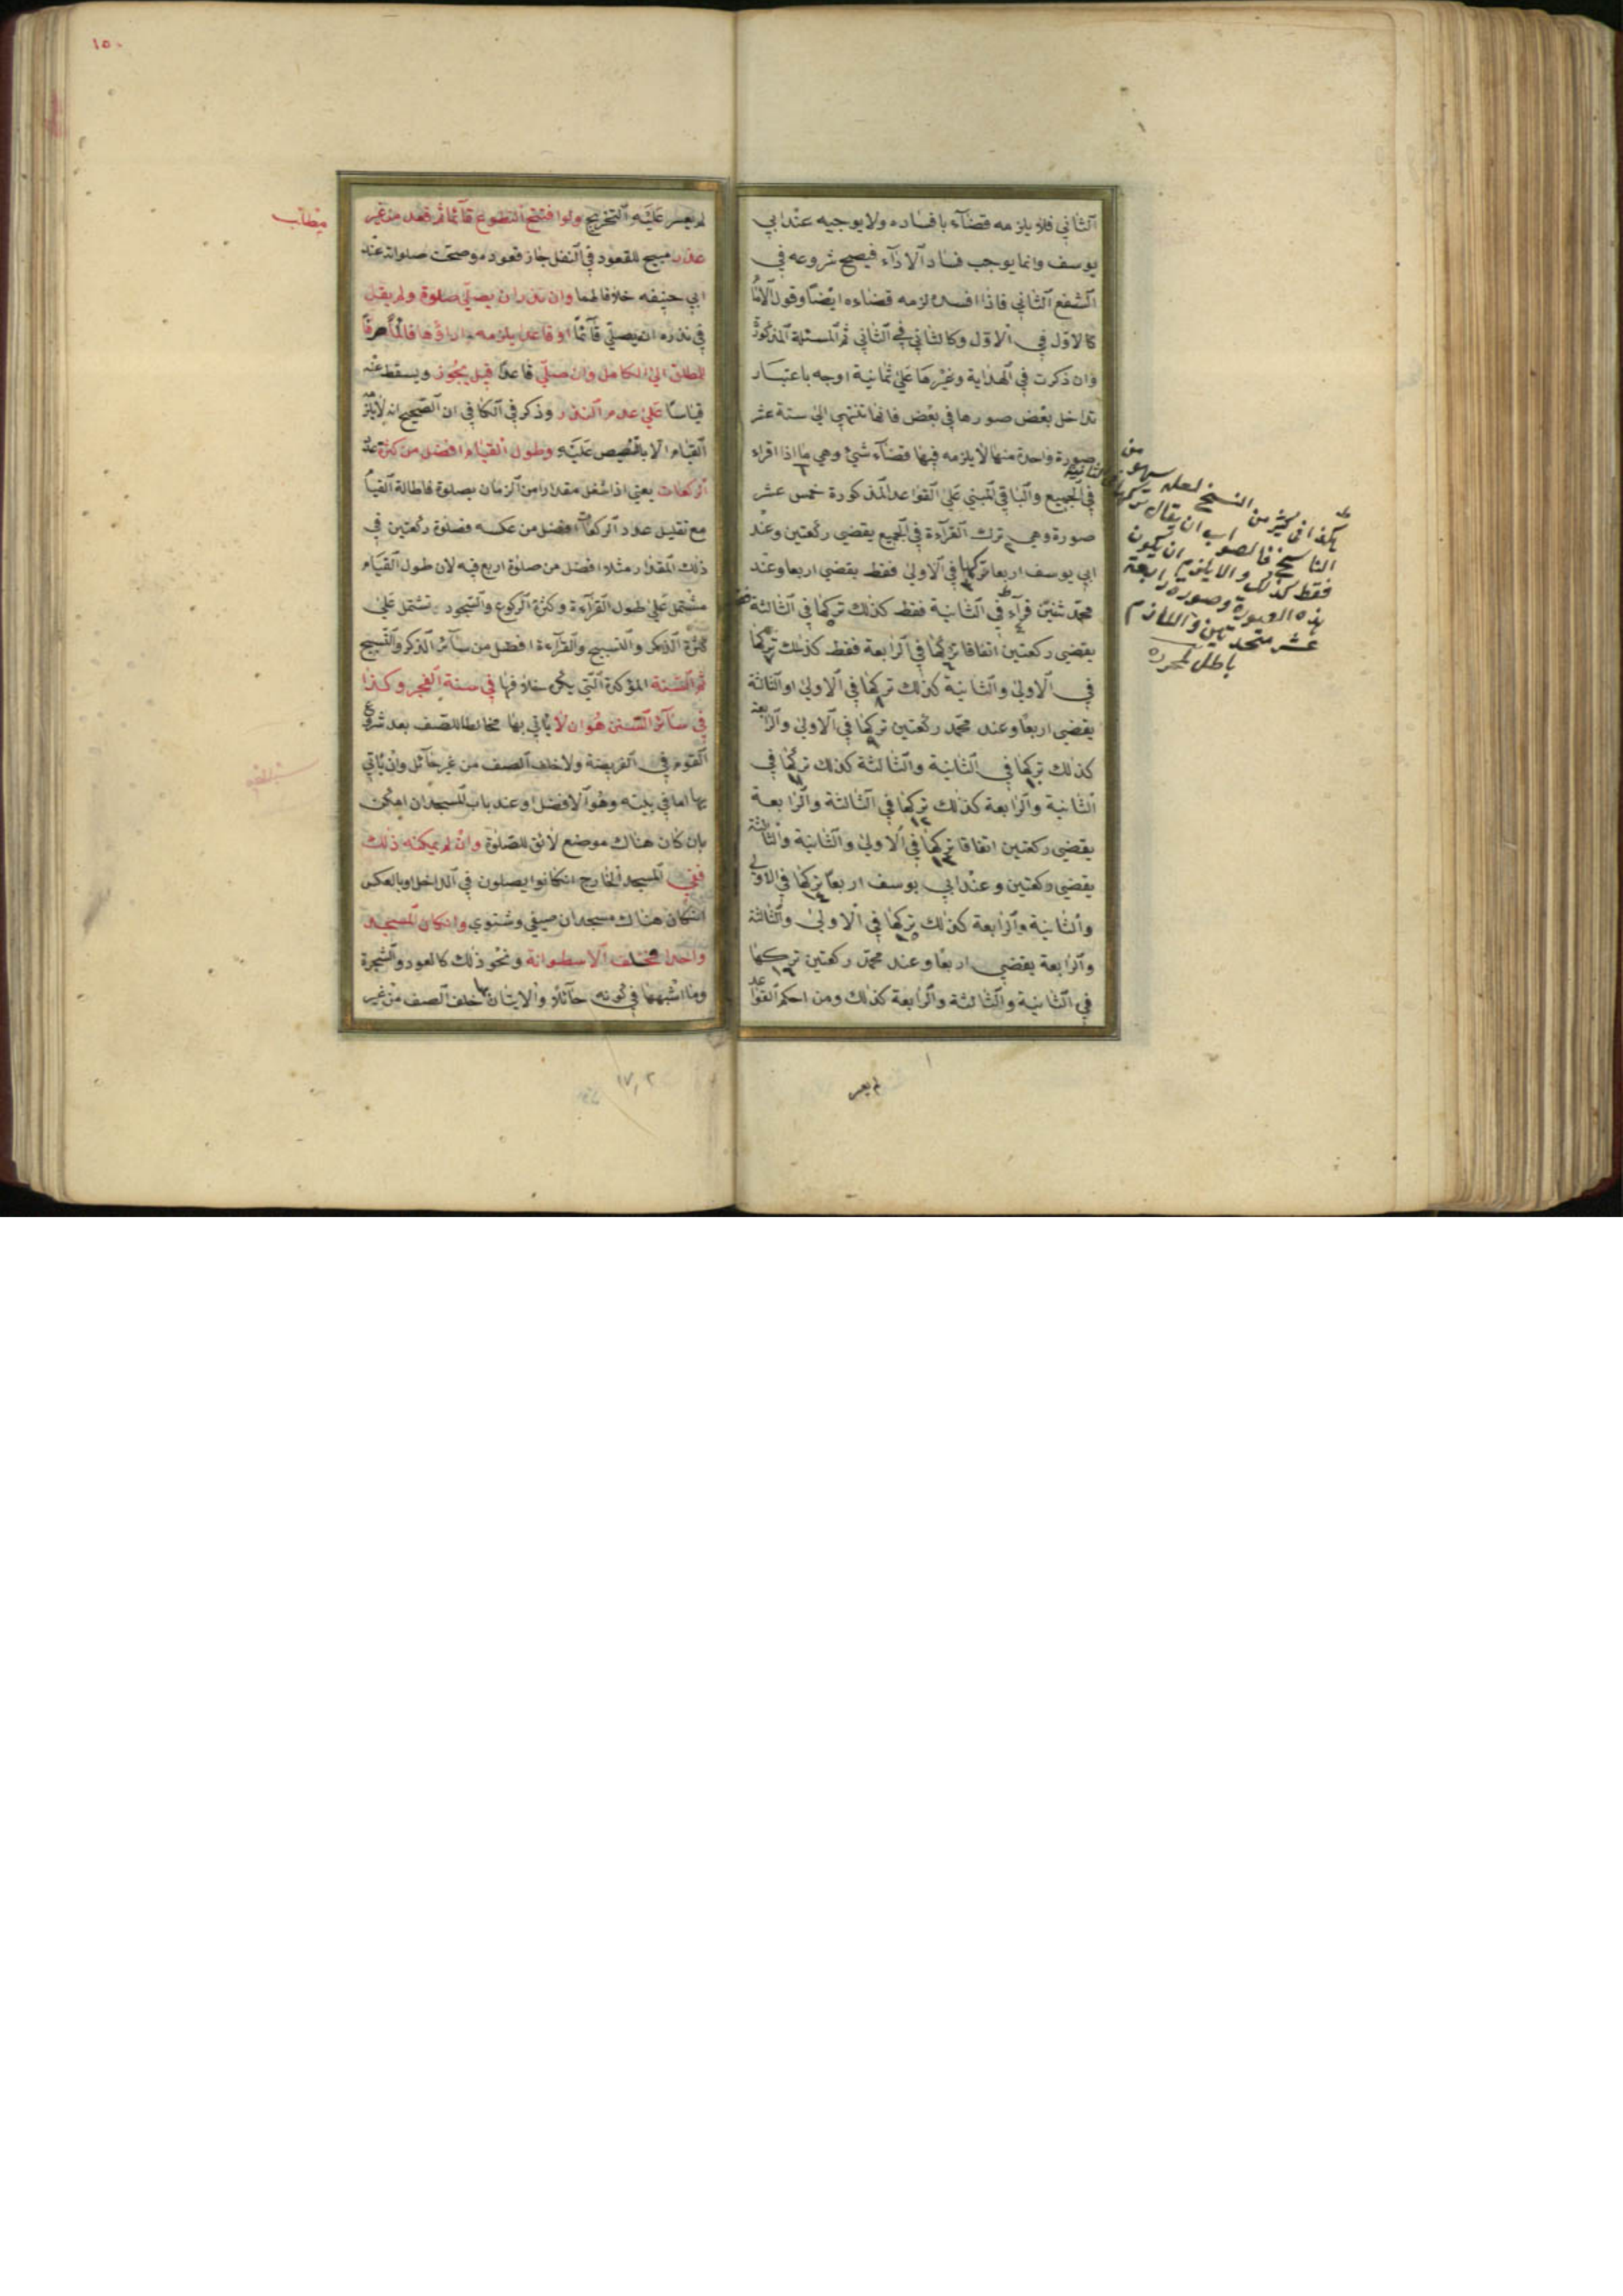 الثاني فلا يلزمه قضآء بافساده ولا يوجبه عند ابي
يوسف وانما يوجب فساد الاداء فيصح شروعه في
الشفع الثاني فاذا افسده لزمه قضاءه ايضا وقول الامام
كالاول في الاول وكالثاني في الثاني ثم المسئلة المذكورة
وان ذكرت في الهداية وغيرها على ثمانية اوجه باعتبار
تداخل بعض صورها في بعض فانها تنتهي الى ستة عشر
صورة واحدة منها لا يلزمه فيها قضاء شئ وهي ما اذا اقراء
في الجميع والباقي المبني على القواعد المذكورة خمس عشر
صورة وهي ترك القرآءة في الجميع يقضي ركعتين وعند
ابي يوسف اربعا تركها في الاولى فقط يقضي اربعا وعند
محمد ثنتين في الثانية فقط كذلك تركها في الثالثة فقط
يقضي ركعتين اتفاقا تركها في الرابعة فقط كذلك تركها
في الاولى والثانية كذلك تركها في الاولى او الثالثة
يقضي اربعا وعند محمد ركعتين تركها في الاولى والرابعة
كذلك تركها في الثانية والثالثة كذلك تركها في
الثانية والرابعة كذلك تركها في الثالثة والرابعة
يقضي ركعتين اتفاقا تركها في الاولى والثانية والثالثة
يقضي ركعتين وعند ابي يوسف اربعا تركها في الاولى
والثانية والرابعة كذلك تركها في الاولى والثالثة
والرابعة يقضي اربعا وعند محمد ركعتين تركها
في الثانية والثالثة والرابعة كذلك ومن احكم القواعد
هكذا في كثير من النسخ لعله سهو من
الناسخ فالصواب ان يقال تركها في الثانية
فقط كذلك والا يلزم ان يكون
هذه الصورة وصورة رابعة
عشر متحدتين واللازم
باطل
لم يعسر
١٥٠
لم يعسر عليه التخريج ولو افتتح التطوع قآئما ثم قعد من غير
عذر مبيح للقعود في النفل جاز قعوده وصحت صلواته عند
ابي حنيفه خلافا لهما وان نذر ان يصلي صلوة ولم يقل
في نذره ان يصلي قآئما او قاعدا يلزمه اداؤها قائما صرفا
للمطلق الى الكامل وان صلى قاعدا قيل يجوز ويسقط عنه
قياسا على عدم النذر وذكر في الكافي ان الصحيح انه لا يلزم
القيام الا بالتنصيص عليه وطول القيام افضل من كثرة عدد
الركعات يعني اذا شغل مقدارا من الزمان بصلوة فاطالة القيام
مع تقليل عدد الركعات افضل من عكسه فصلوة ركعتين في
ذلك المقدار مثلا افضل من صلوة اربع فيه لان طول القيام
مشتمل على طول القرآءة وكثرة الركوع والسجود تشتمل على
كثرة الذكر والتسبيح والقرآءة افضل من سآئر الذكر والتسبيح
ثم السنة المؤكدة التي يكره خلافها في سنة الفجر وكذا
في سآئر السنن هو ان لا ياتي بها مخالطا للصف بعد شروع
القوم في الفريضة ولا خلف الصف من غير حآئل وان ياتي
بها اما في بيته وهو الافضل او عند باب المسجد ان امكن
بان كان هناك موضع لائق للصلوة وان لم يمكنه ذلك
ففي المسجد الخارج ان كانوا يصلون في الداخل او بالعكس
ان كان هناك مسجدان صيفي وشتوي وان كان المسجد
واحدا فخلف الاسطوانة ونحو ذلك كالعود والشجرة
وما اشبهها في كونه حآئلا والاتيان بها خلف الصف من غير
مطلب
١٧٫٢